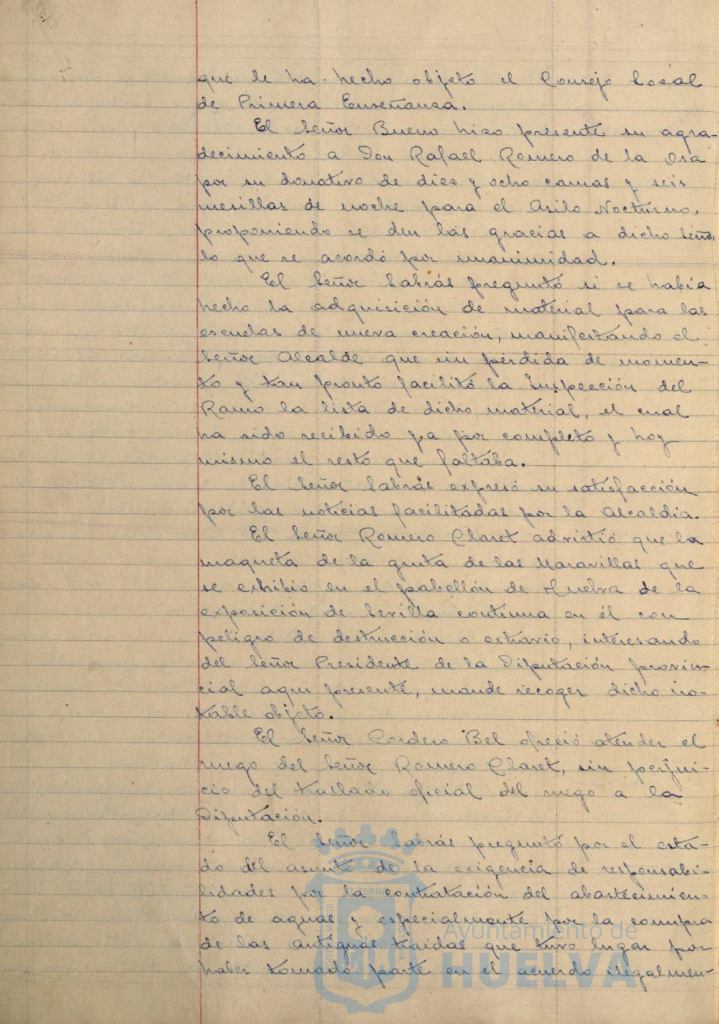 que le ha hecho objeto el Consejo Local
de Primera Enseñanza.
El Señor Bueno hizo presente su agra-
decimiento a Don Rafael Romero de la Osa
por su donativo de diez y ocho camas y seis
mesillas de noche para el Asilo Nocturno,
proponiendo se den las gracias a dicho Señor
lo que se acordó por unanimidad.
El Señor Sabrás preguntó si se había
hecho la adquisición de material para las
escuelas de nueva creación, manifestando el
Señor Alcalde que sin pérdida de momen-
to y tan pronto facilitó la Inspección del
Ramo la lista de dicho material, el cual
ha sido recibido ya por completo y hoy
mismo el resto que faltaba.
El Señor Sabrás expresó su satisfacción
por las noticias facilitadas por la Alcaldía.
El Señor Romero Claret advirtió que la
maqueta de la gruta de las Maravillas que
se exhibió en el pabellón de Huelva de la
exposición de Sevilla continua en él con
peligro de destrucción o extravío, interesando
del Señor Presidente de la Diputación provin-
cial aqui presente, mande recoger dicho no-
table objeto.
El Señor Cordero Bel ofreció atender el
ruego del Señor Romero Claret, sin perjui-
cio del traslado oficial del ruego a la
Diputación.
El Señor Sabrás preguntó por el esta-
do del asunto de la exigencia de responsabi-
lidades por la contratación del abastecimien-
to de aguas y especialmente por la compra
de las antiguas traidas que tuvo lugar por
haber tomado parte en el acuerdo ilegalmen-
Ayuntamiento de
HUELVA